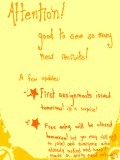 Attention!
good to see so many
new recruits!
A few updates:
First assignments issued
tomorrow is a
Free entry will be closed
tomorrow but you may still
to join and everyone who
already joined